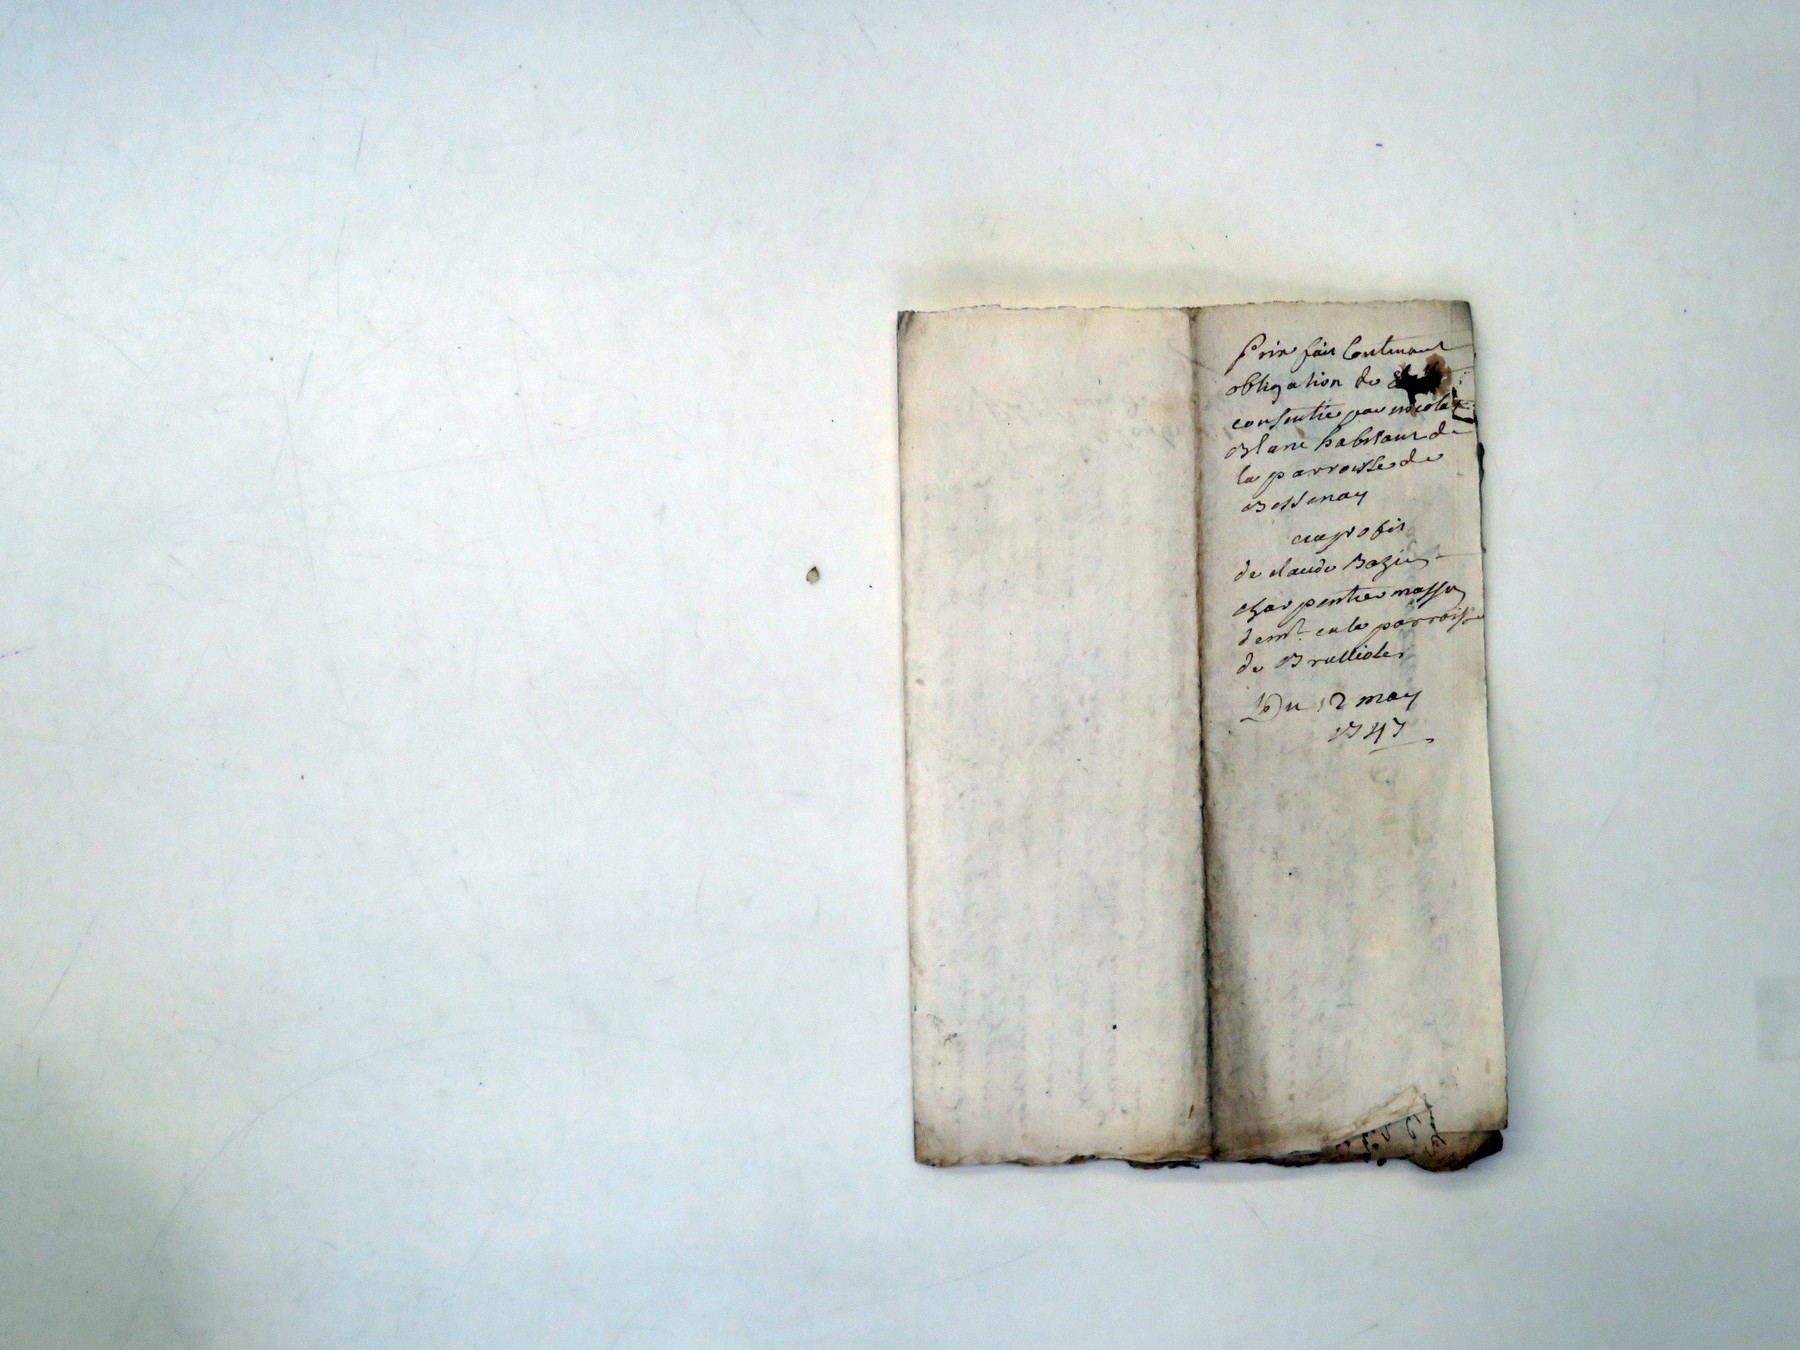 Prix fait Contenant
obligation de
consentie par nicolas
Blanc habitant de
la parroisse de
Bessenay
au profit
de claude Bazin
charpentier masson
demt. en la parroisse
de Brullioles
Du 12 may
1747